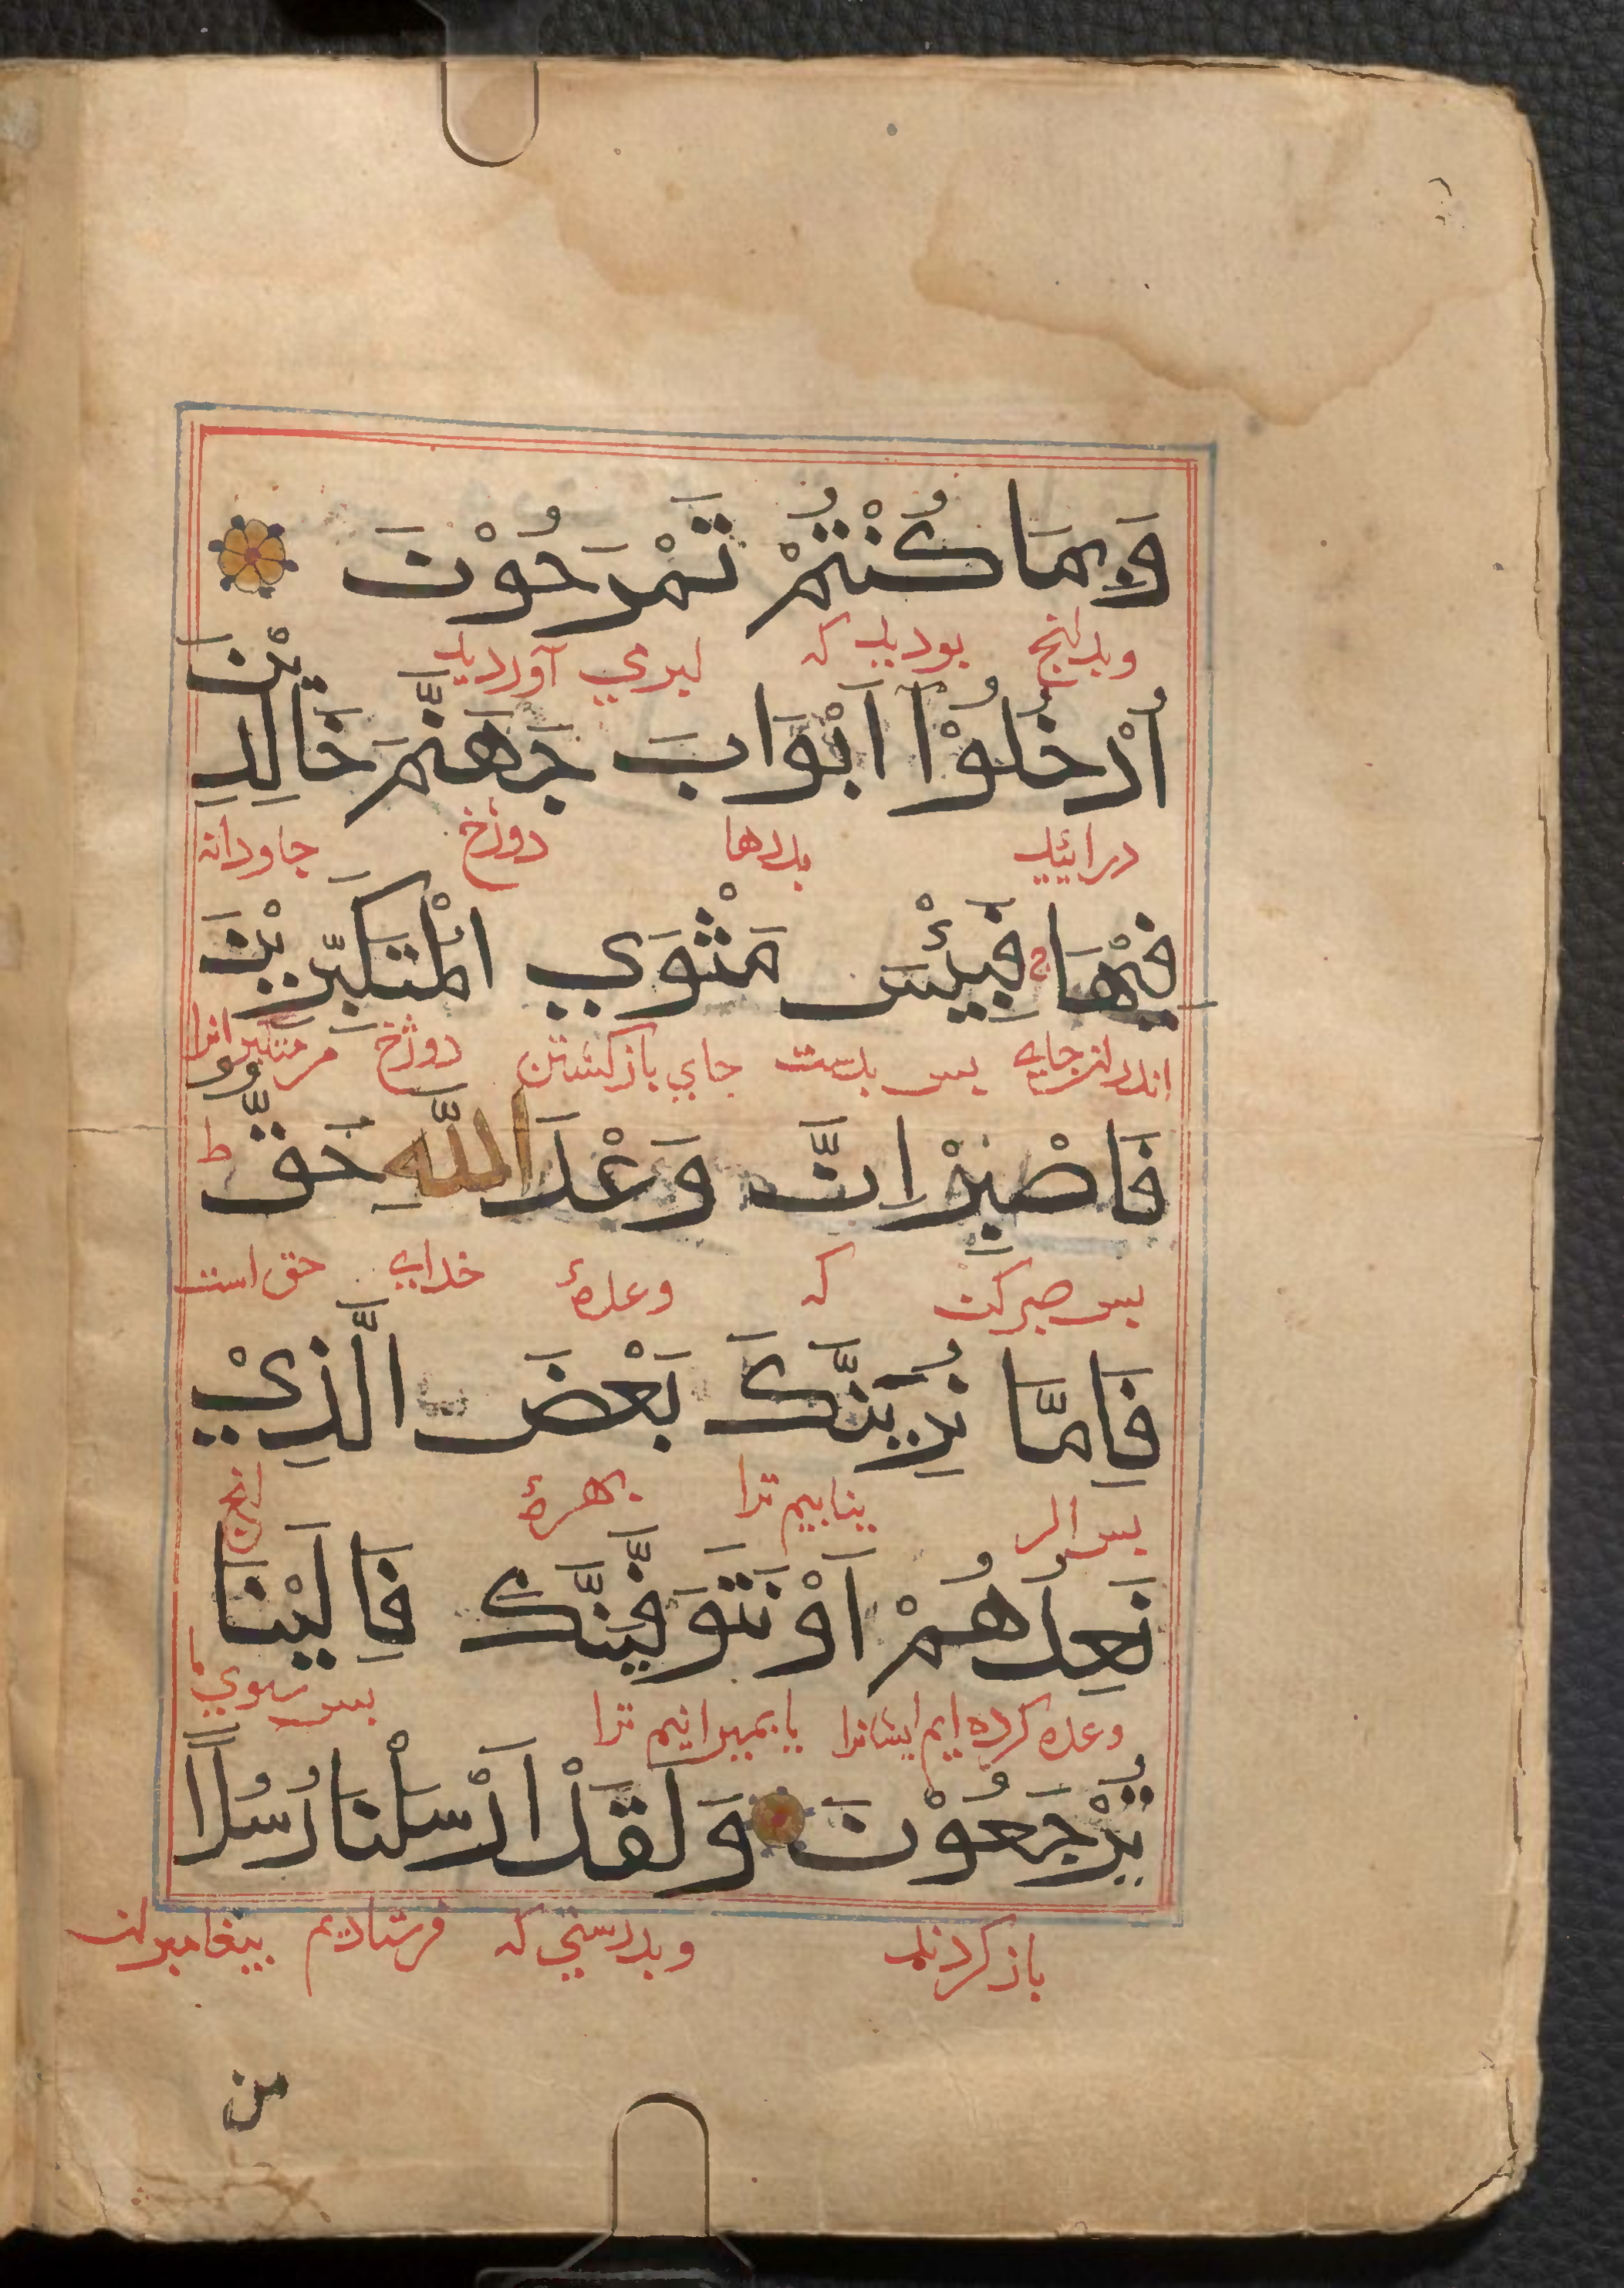 وَبِمَا كُنْتُمْ تَمْرَحُوْنَ
وبدانچ بودید که لبری آوردید
اُدْخُلُوْا اَبْوَابَ جَهَنَّمَ خَالِدِيْنَ
درائید بدرها دوزخ جاودانه
فِيْهَا فَبِئْسَ مَثْوَي الْمُتَكَبِّرِيْنَ
اندران جایه بس بدست جای بازکشتن دوزخ مر متکبرانرا
فَاصْبِرْ اِنَّ وَعْدَ اللّٰهِ حَقٌّ ط
بس صبر کن که وعدهٔ خدای حق است
فَاِمَّا نُرِيَنَّكَ بَعْضَ الَّذِيْ
بس اکر بنماییم ترا بهرهٔ انچ
نَعِدُهُمْ اَوْ نَتَوَفَّيَنَّكَ فَاِلَيْنَا
وعده کرده ایم ایشانرا یا بمیرانیم ترا بس بسوی ما
يُرْجَعُوْنَ وَلَقَدْ اَرْسَلْنَا رُسُلًا
باز کردند وبدرستی که فرستادیم بیغامبران
من